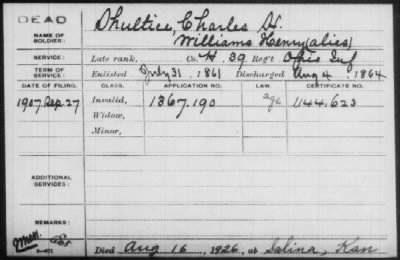 DEAD
NAME OF SOLDIER: Shultice, Charles H.
Williams Henry (alias)
SERVICE: Late rank, Co. H. 39 Reg't Ohio Inf
TERM OF SERVICE: Enlisted July 31, 1861 Discharged Aug 4, 1864
DATE OF FILING. CLASS. APPLICATION NO. LAW CERTIFICATE NO.
1907 Sep. 27 Invalid, 1367.190 age 1144.623
Widow,
Minor,
ADDITIONAL SERVICES:
REMARKS:
Died Aug 16, 1926, at Salina, Kan